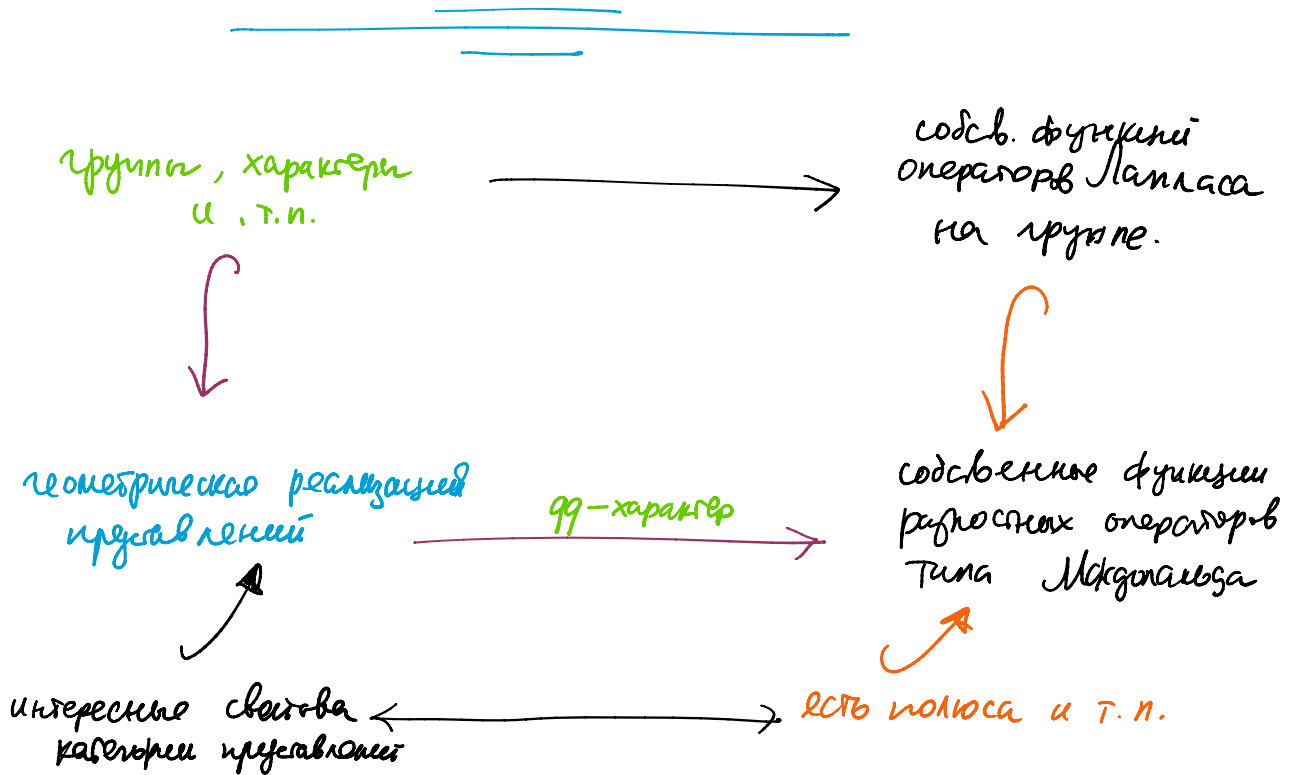 группы, характеры
и. т.п.
собсв. функций
операторов Лапласа
на группе.
геометрическая реализаций
представлений
qq-характер
собственные функции
разностных операторов
типа Макдональда
интересные свойства
категории представлений
есть полюса и т.п.